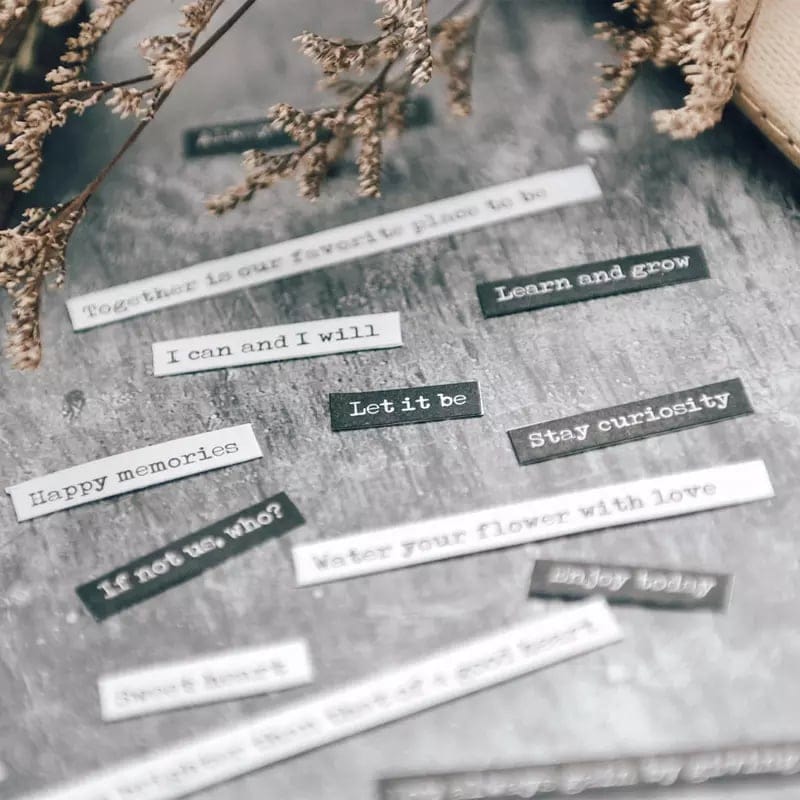 Together is our favorite place to be
Learn and grow
I can and I will
Let it be
Stay curiosity
Happy memories
If not us, who?
Water your flower with love
Enjoy today
Sweet heart
brighter than that of a good heart
always gain by giving